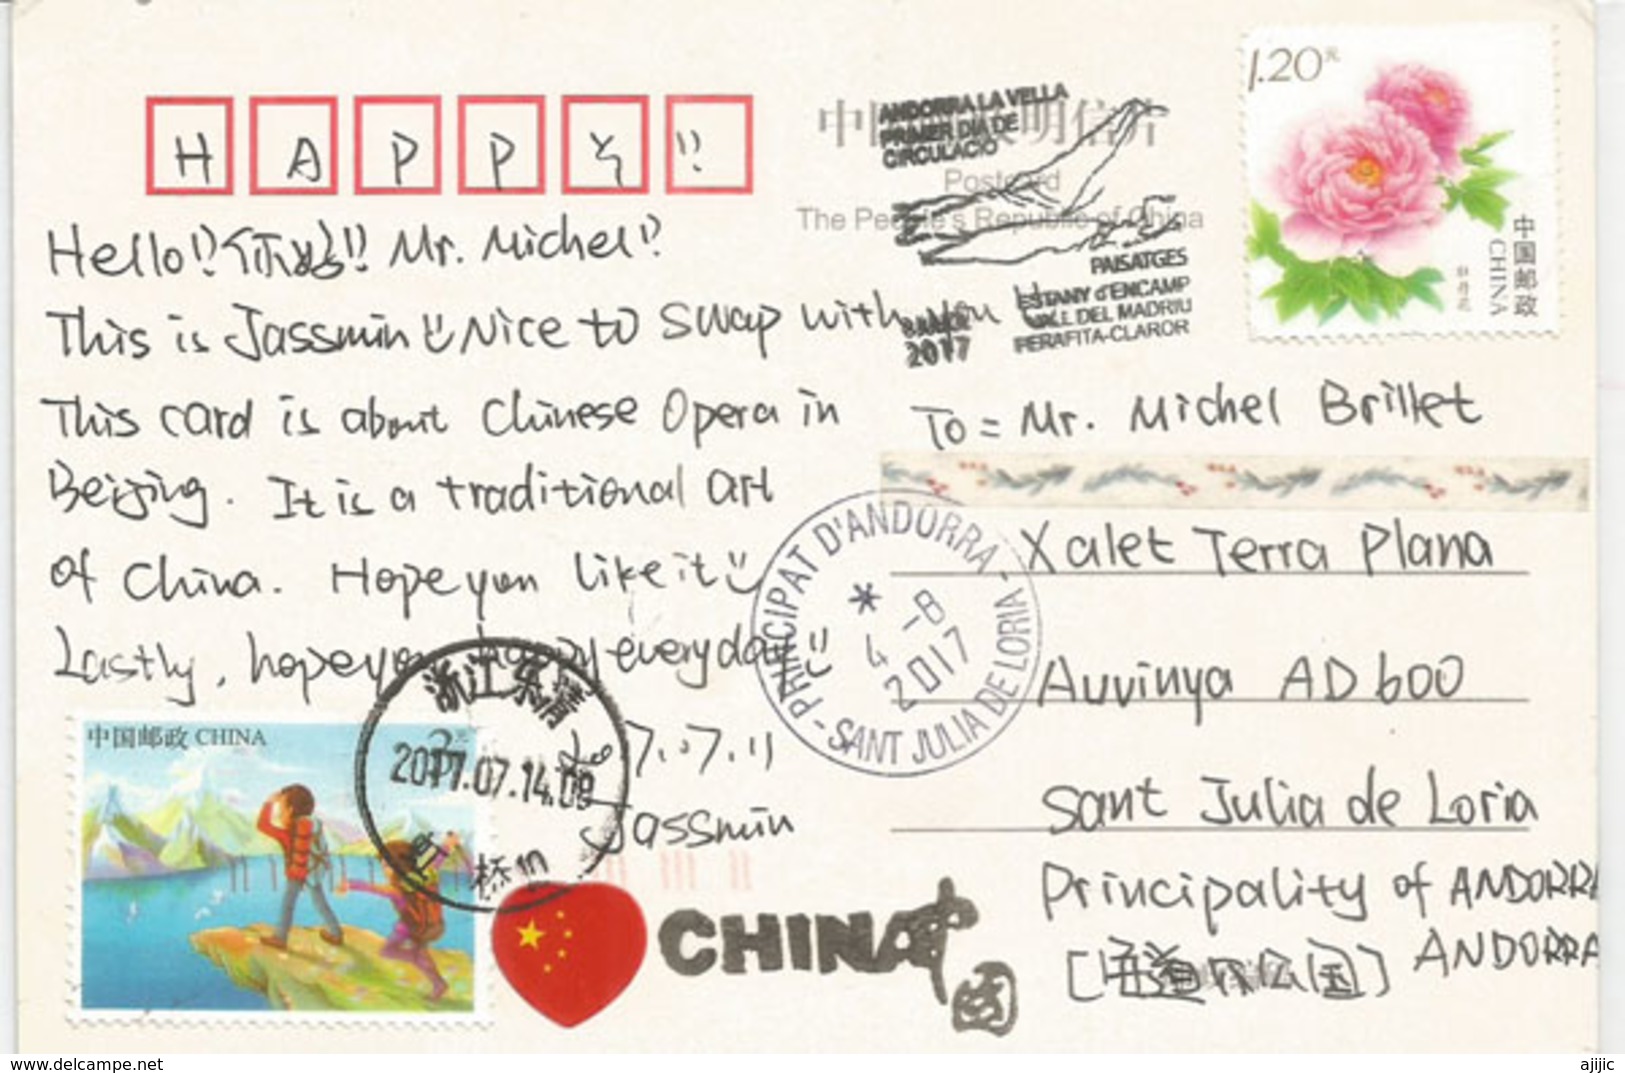 H A P P Y !!
Hello!! 你好!! Mr. Michel!!
This is Jassmin Nice to swap with you
This card is about Chinese Opera in
Beijing. It is a traditional art
of China. Hope you like it
Lastly, hope you happy everyday
7.07.11
Jassmin
中国 明信片
Postcard
The People's Republic of China
ANDORRA LA VELLA
PRIMER DIA DE
CIRCULACIO
PAISATGES
ESTANY d'ENCAMP
VALL DEL MADRIU
PERAFITA-CLAROR
2017
1.20元
中国邮政
CHINA
牡丹花
To: Mr. Michel Brillet
Xalet Terra Plana
Auvinya AD600
Sant Julia de Loria
Principality of ANDORRA
ANDORRA
PRINCIPAT D'ANDORRA - SANT JULIA DE LORIA -
4 -8
2017
中国邮政 CHINA
3元
浙江乐清
2017.07.14.09
虹桥
CHINA 中国
www.delcampe.net
ajijic